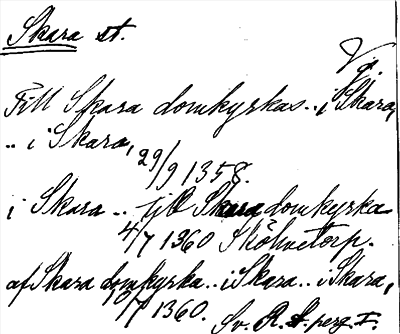 Skara st.
Vg.
Till Skara domkyrkas .. i Skara,
.. i Skara,
29/9 1358.
i Skara .. till Skara domkyrka
4/7 1360 Sköluetorp.
af Skara domkyrka .. i Skara .. i Skara,
/7 1360. Sv. R. A. perg. I.